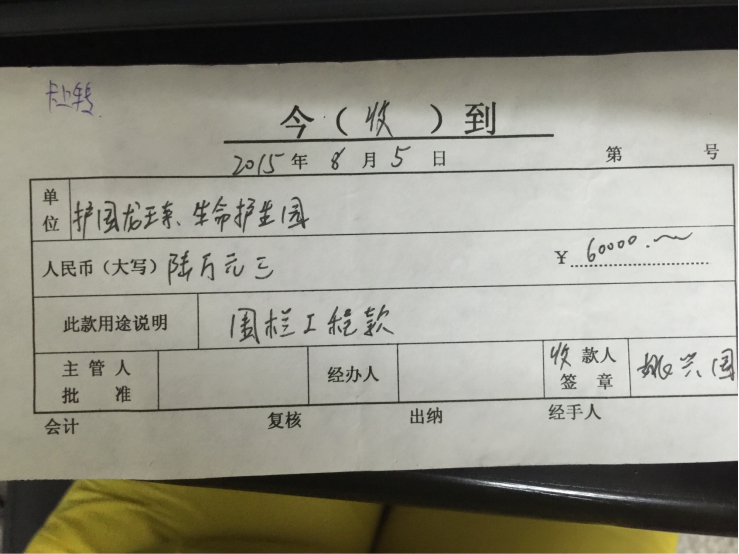 卡上转
今(收)到
2015年8月5日 第 号
单位 护国龙王寺、生命护生园
人民币(大写)陆万元 ¥60000.
此款用途说明 围栏工程款
主管人批准 经办人 收款人签章 姚兴国
会计 复核 出纳 经手人